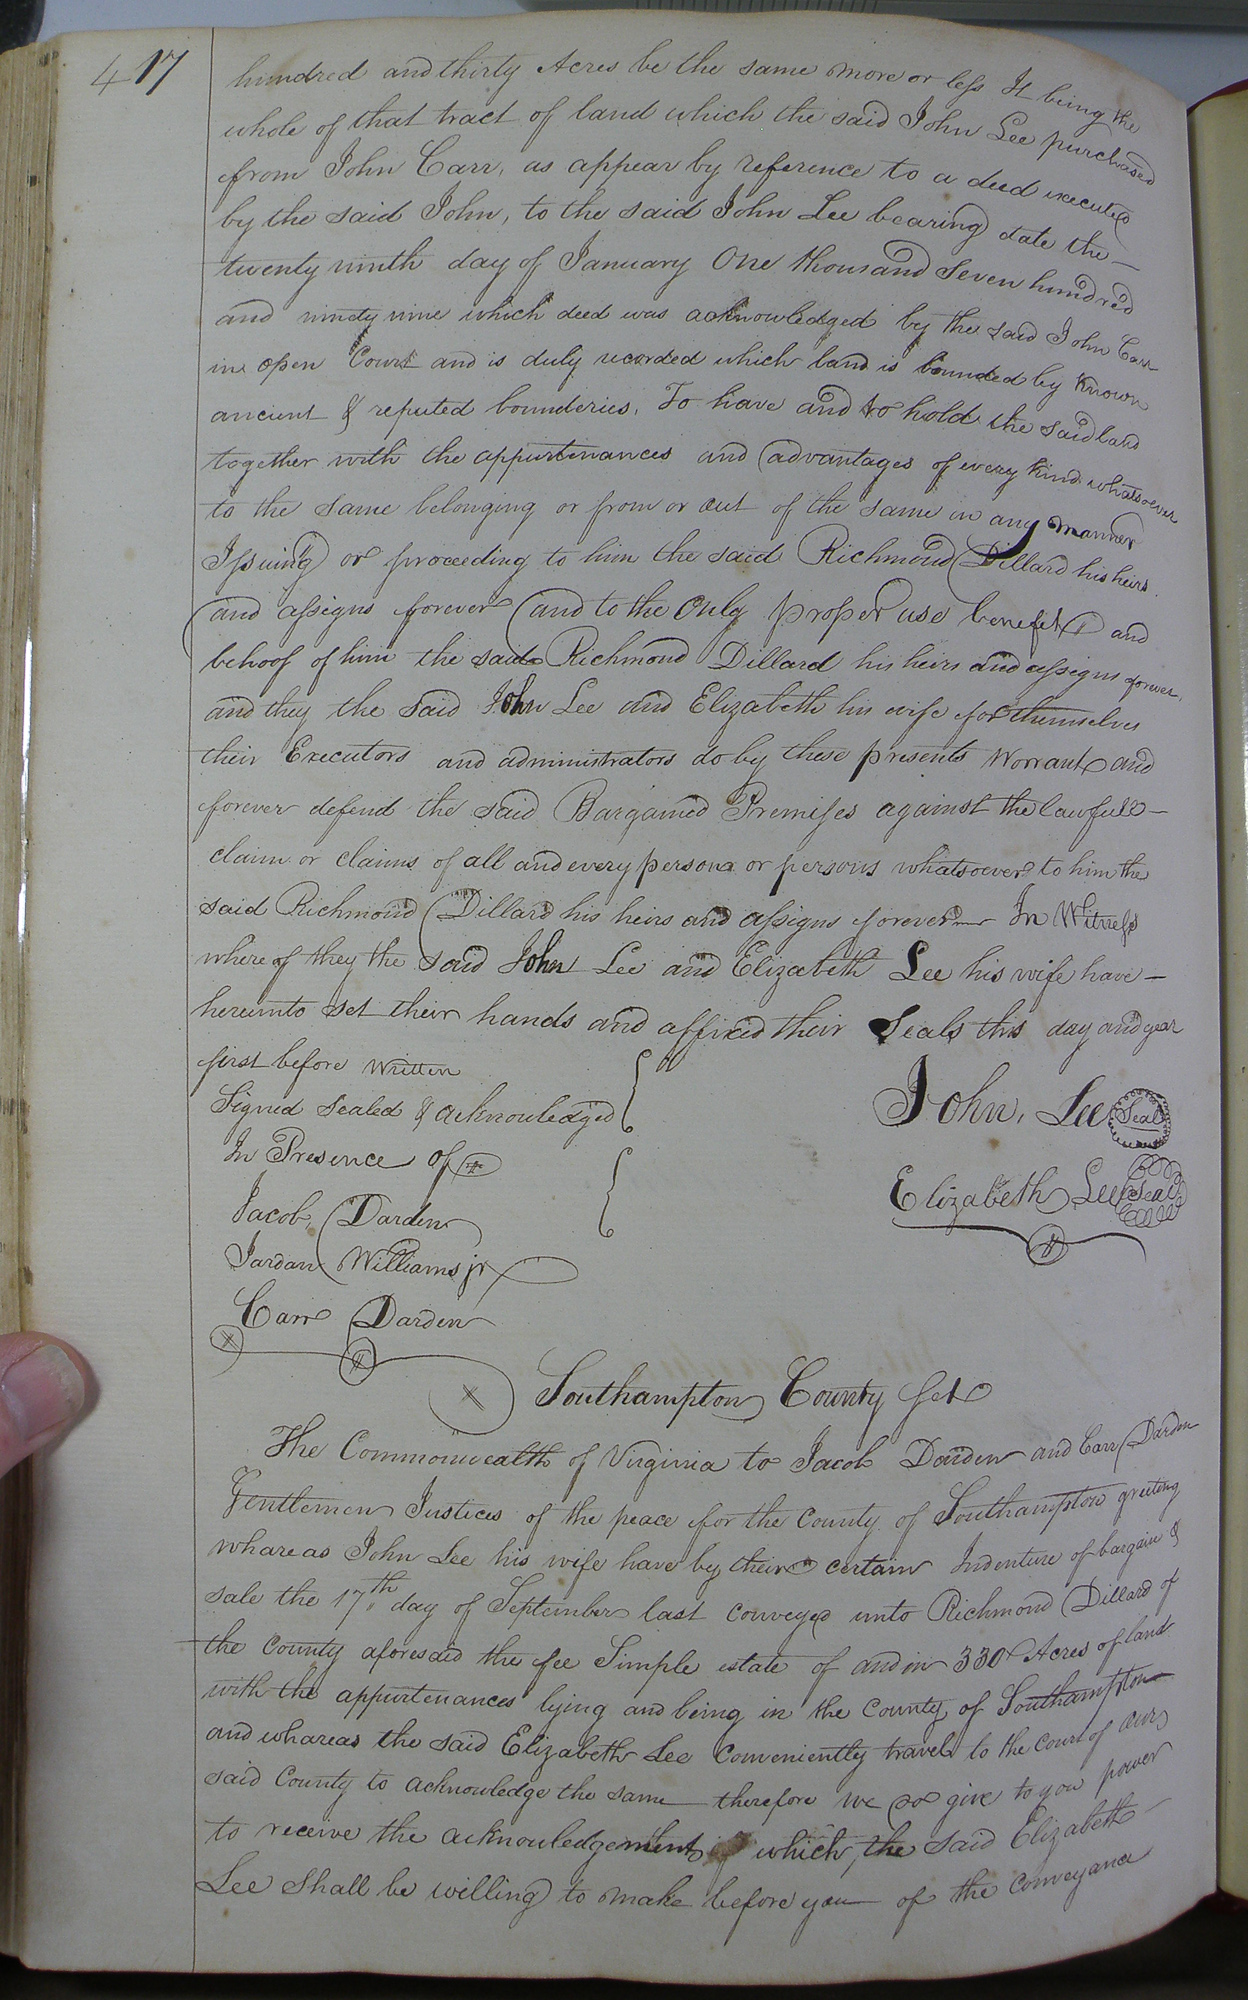 417
hundred and thirty Acres be the same more or less It being the
whole of that tract of land which the said John Lee purchased
from John Carr, as appear by reference to a deed executed
by the said John, to the said John Lee bearing date the
twenty ninth day of January One thousand Seven hundred
and ninety nine which deed was acknowledged by the said John Carr
in open Court and is duly recorded which land is bounded by known
ancient & reputed bounderies, To have and to hold the said land
together with the appurtenances and advantages of every kind whatsoever
to the same belonging or from or out of the same in any manner
Issuing or proceeding to him the said Richmond Dillard his heirs
and assigns forever and to the Only proper use benefit and
behoof of him the said Richmond Dillard his heirs and assigns forever
and they the said John Lee and Elizabeth his wife for themselves
their Executors and administrators do by these presents Warrant and
forever defend the said Bargained Premises against the lawfull
claim or claims of all and every persons or persons whatsoever to him the
said Richmond Dillard his heirs and assigns forever In Witness
where of they the said John Lee and Elizabeth Lee his wife have
hereunto set their hands and affixed their Seals this day and year
first before written
Signed Sealed & acknowledged
In Presence of
John, Lee Seal
Jacob, Darden
Elizabeth Lee Seal
Jardan Williams jr
Carr Darden
Southampton County Sct
The Commonwealth of Virginia to Jacob Darden and Carr Darden
Gentlemen Justices of the peace for the County of Southampton greeting
whareas John Lee his wife have by their certain Indenture of bargain &
sale the 17th day of September last conveyed unto Richmond Dillard of
the County aforesaid the fee Simple estate of and in 330 Acres of land
with the appurtenances lying and being in the County of Southampton
and whareas the said Elizabeth Lee Conveniently travel to the Court of our
said County to acknowledge the same therefore we do give to you power
to receive the acknowledgement which, the said Elizabeth
Lee Shall be willing to make before you of the conveyance